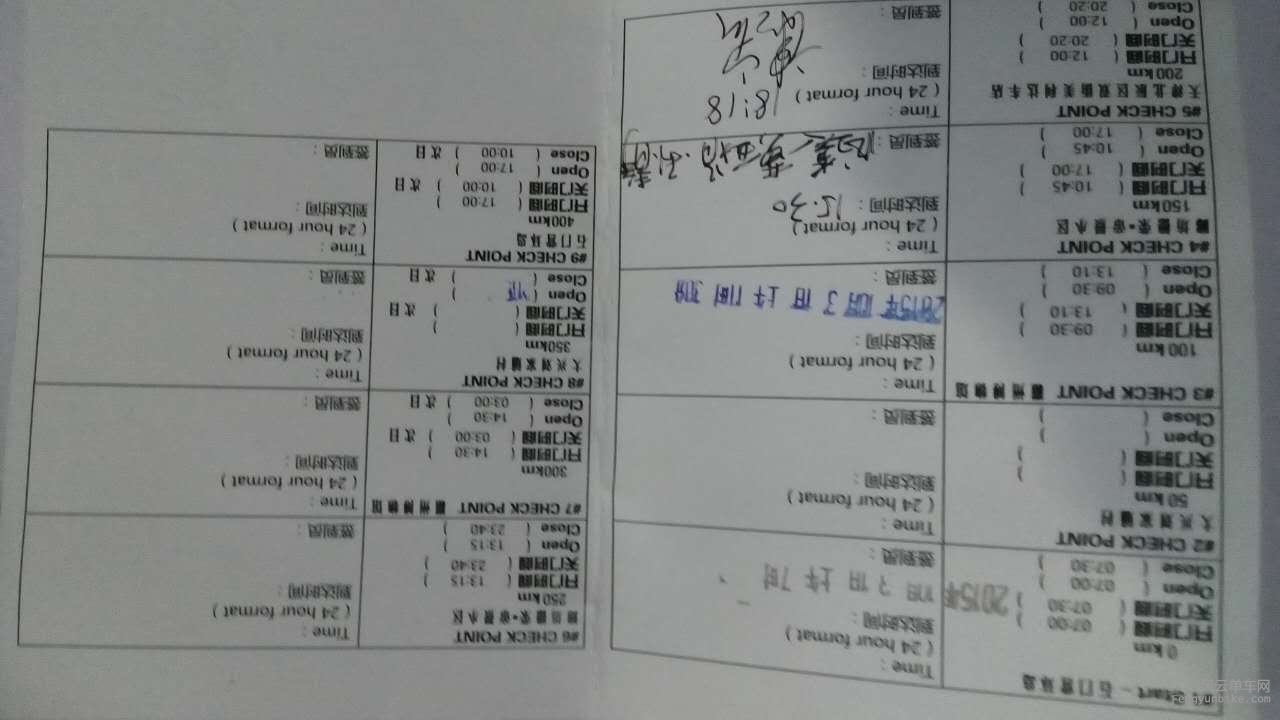 Start - 石门营环岛
0 km
开门时间 ( 07:00 )
关门时间 ( 07:30 )
Open ( 07:00 )
Close ( 07:30 )
Time :
( 24 hour format )
到达时间 :
2015年 10月 3日 上午 7时
签到员 :
#2 CHECK POINT
大兴刘家铺村
50 km
开门时间 ( )
关门时间 ( )
Open ( )
Close ( )
Time :
( 24 hour format )
到达时间 :
签到员 :
#3 CHECK POINT 霸州博物馆
100 km
开门时间 ( 09:30 )
关门时间 ( 13:10 )
Open ( 09:30 )
Close ( 13:10 )
Time :
( 24 hour format )
到达时间 :
2015年 10月 3日 上午 11时 37分
签到员 :
#4 CHECK POINT
150km
开门时间 ( 10:45 )
关门时间 ( 17:00 )
Open ( 10:45 )
Close ( 17:00 )
Time :
( 24 hour format )
到达时间 : 15:30
签到员 :
#5 CHECK POINT
天津北辰区双街美利达车店
200 km
开门时间 ( 12:00 )
关门时间 ( 20:20 )
Open ( 12:00 )
Close ( 20:20 )
Time :
( 24 hour format ) 18:18
到达时间 :
签到员 :
#6 CHECK POINT
250km
开门时间 ( 13:15 )
关门时间 ( 23:40 )
Open ( 13:15 )
Close ( 23:40 )
Time :
( 24 hour format )
到达时间 :
签到员 :
#7 CHECK POINT 霸州博物馆
300km
开门时间 ( 14:30 )
关门时间 ( 03:00 ) 次日
Open ( 14:30 )
Close ( 03:00 ) 次日
Time :
( 24 hour format )
到达时间 :
签到员 :
#8 CHECK POINT
大兴刘家铺村
350km
开门时间 ( )
关门时间 ( ) 次日
Open ( )
Close ( ) 次日
Time :
( 24 hour format )
到达时间 :
签到员 :
#9 CHECK POINT
石门营环岛
400km
开门时间 ( 17:00 )
关门时间 ( 10:00 ) 次日
Open ( 17:00 )
Close ( 10:00 ) 次日
Time :
( 24 hour format )
到达时间 :
签到员 :
云单车网
Fengyunbike.com